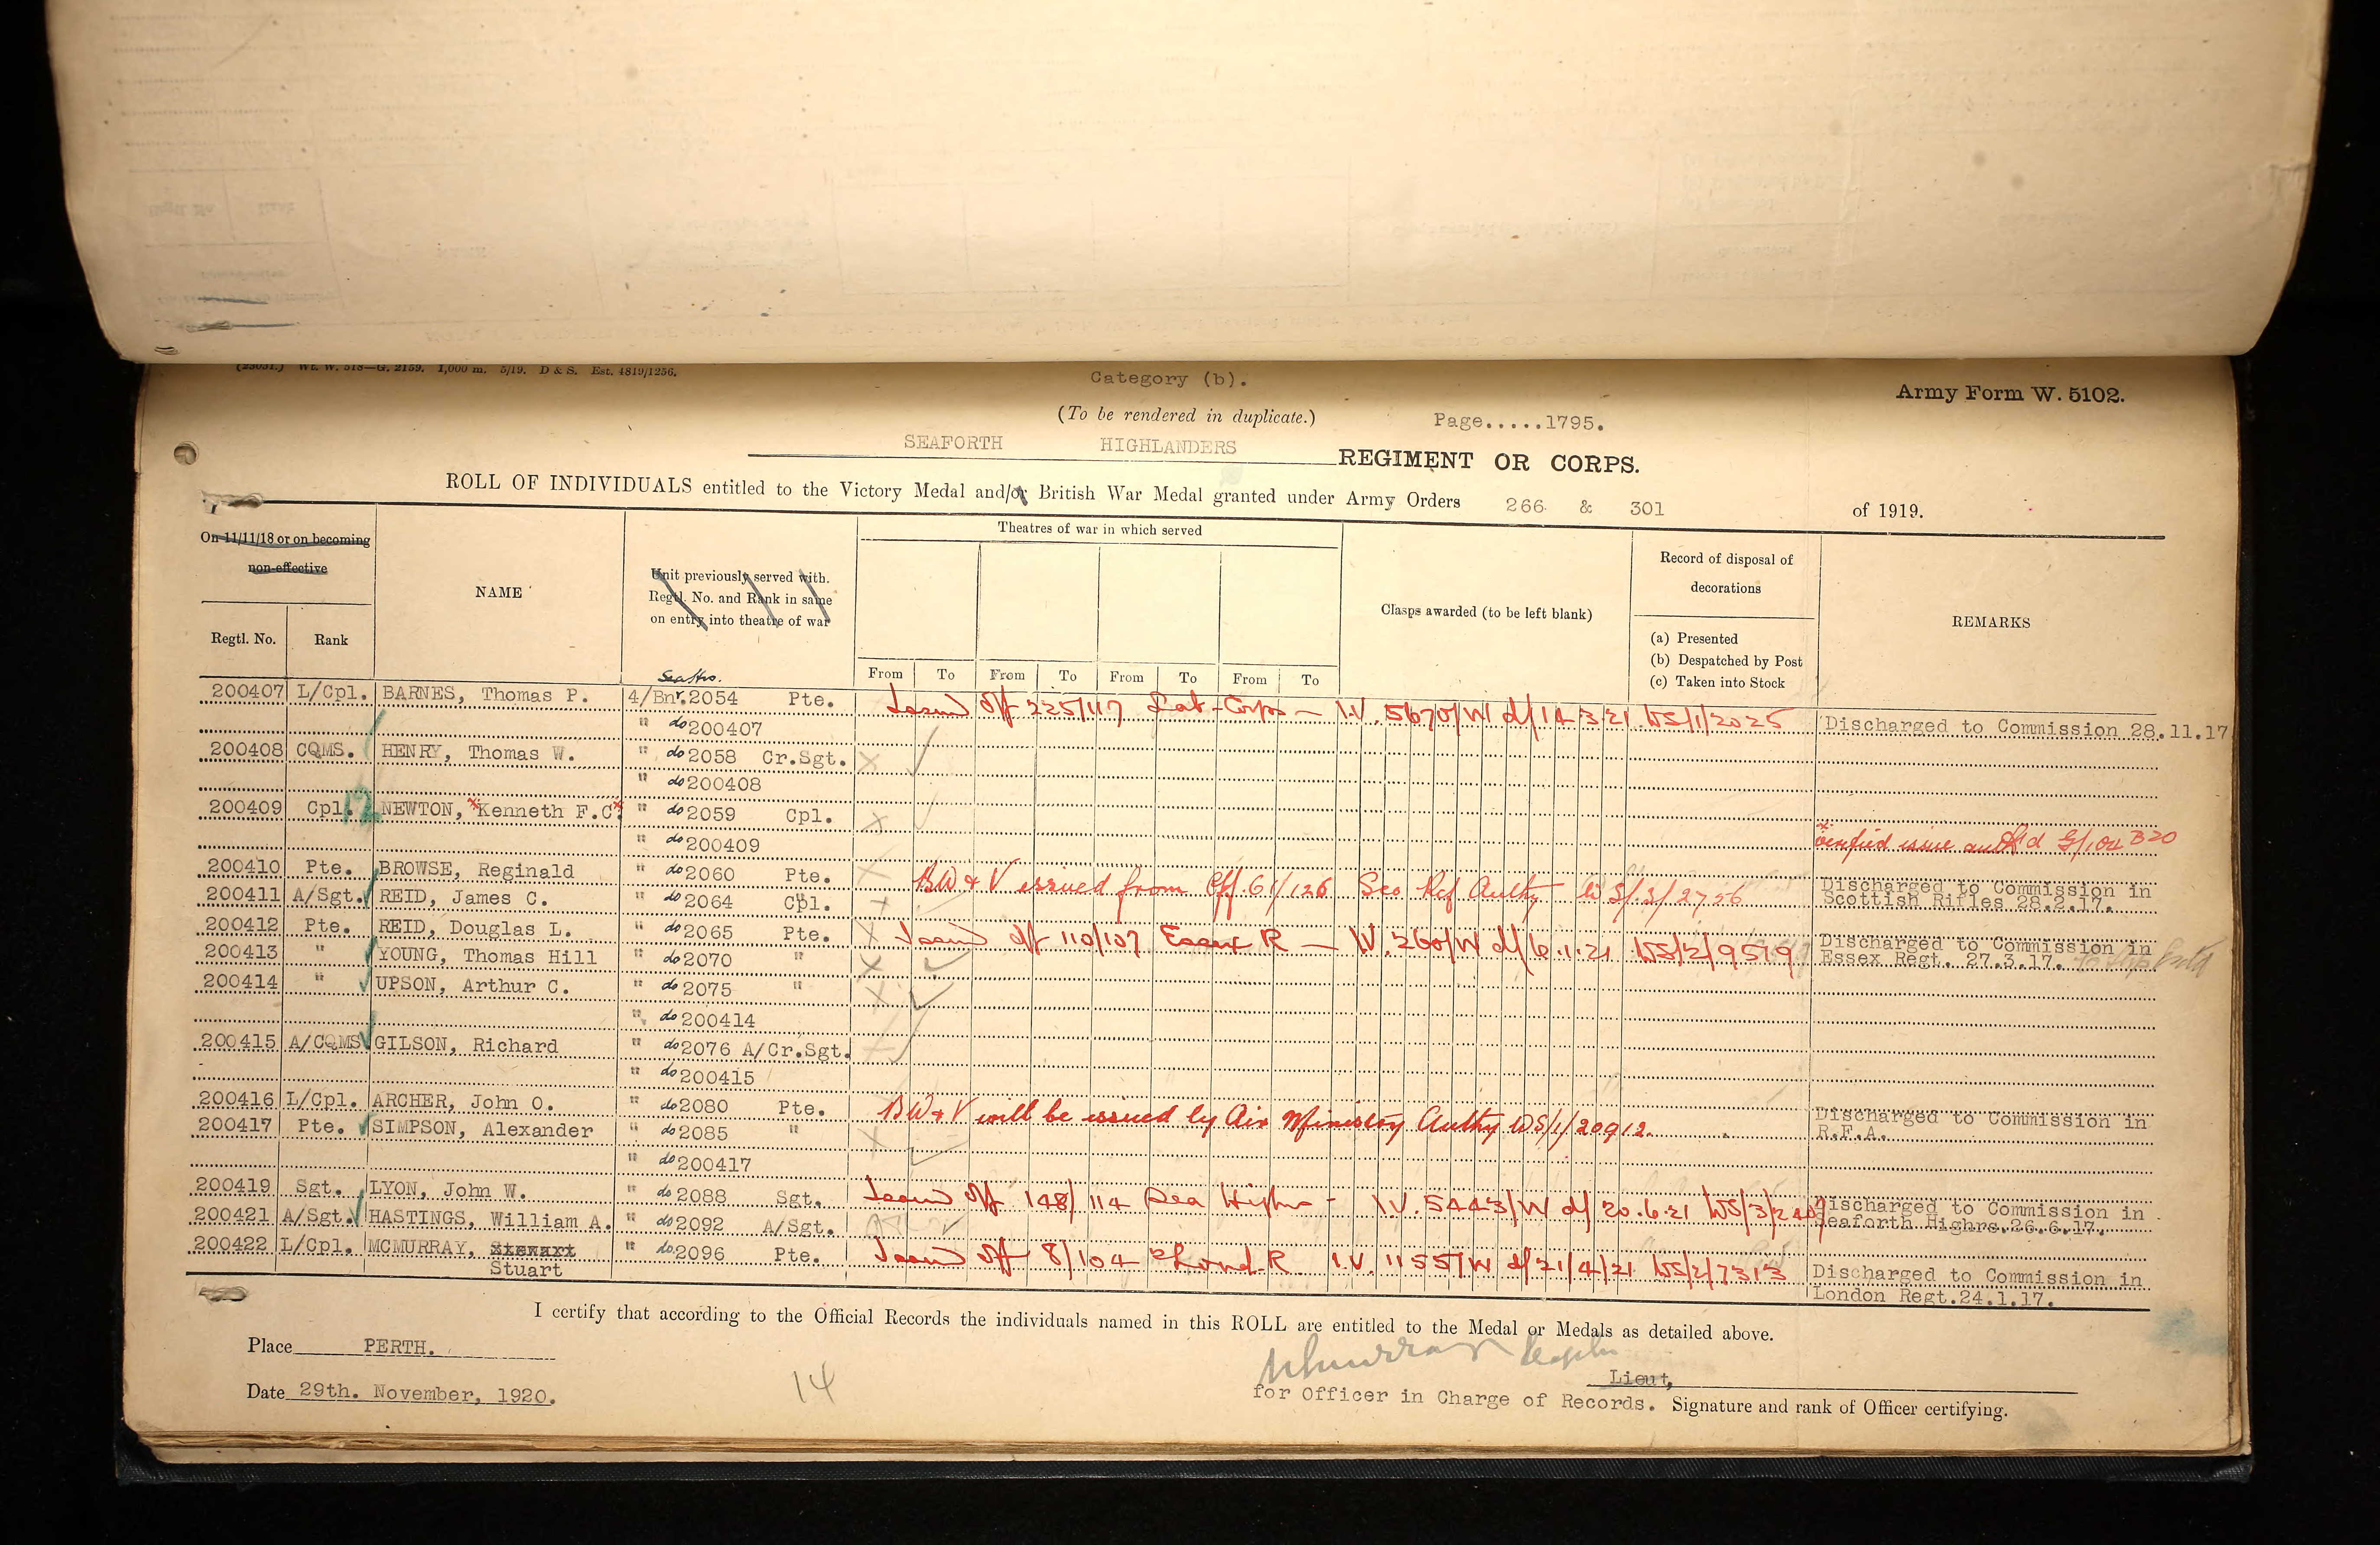 (25051.) Wt. W. 518—G. 2159. 1,000 m. 5/19. D & S. Est. 4819/1256.
Category (b).
Army Form W. 5102.
(To be rendered in duplicate.)
Page.....1795.
SEAFORTH HIGHLANDERS REGIMENT OR CORPS.
ROLL OF INDIVIDUALS entitled to the Victory Medal and/or British War Medal granted under Army Orders 266 & 301 of 1919.
On 11/11/18 or on becoming non-effective
Regtl. No.
Rank
NAME
Unit previously served with.
Regtl. No. and Rank in same
on entry into theatre of war
Theatres of war in which served
From To From To From To From To
Clasps awarded (to be left blank)
Record of disposal of
decorations
(a) Presented
(b) Despatched by Post
(c) Taken into Stock
REMARKS
200407 L/Cpl. BARNES, Thomas P. 4/Bn. 2054 Pte. 225/117 Corps - I.V. 5670/W d/14 3/21 WS/1/2025 Discharged to Commission 28.11.17
" do 200407
200408 CQMS. HENRY, Thomas W. " do 2058 Cr.Sgt. x
" do 200408
200409 Cpl. NEWTON, Kenneth F.C. " do 2059 Cpl. x
" do 200409 verified issue
200410 Pte. BROWSE, Reginald " do 2060 Pte. BW & V issued from Off 61/126 Sco Rif Authy WS/3/2756 Discharged to Commission in
Scottish Rifles 28.2.17.
200411 A/Sgt. REID, James C. " do 2064 Cpl. x
200412 Pte. REID, Douglas L. " do 2065 Pte. x Issued Off 110/107 Essex R — IV. 260/W d/6.1.21 WS/2/9519 Discharged to Commission in
Essex Regt. 27.3.17.
200413 " YOUNG, Thomas Hill " do 2070 " x
200414 " UPSON, Arthur C. " do 2075 " x
" do 200414
200415 A/CQMS GILSON, Richard " do 2076 A/Cr.Sgt.
" do 200415
200416 L/Cpl. ARCHER, John O. " do 2080 Pte. BW & V will be issued by Air Ministry Authy WS/1/20912. Discharged to Commission in
R.F.A.
200417 Pte. SIMPSON, Alexander " do 2085 " x
" do 200417
200419 Sgt. LYON, John W. " do 2088 Sgt. Issued Off 148/114 Sea Highrs - I.V. 5443/W d/20.6.21 Discharged to Commission in
Seaforth Highrs. 26.6.17.
200421 A/Sgt. HASTINGS, William A. " do 2092 A/Sgt.
200422 L/Cpl. MCMURRAY, Stewart " do 2096 Pte. Issued Off 8/104 Lond R I.V. 1155/W d/21/4/21 WS/2/7313 Discharged to Commission in
Stuart London Regt. 24.1.17.
I certify that according to the Official Records the individuals named in this ROLL are entitled to the Medal or Medals as detailed above.
Place PERTH.
Date 29th. November, 1920.
14
Lieut,
for Officer in Charge of Records. Signature and rank of Officer certifying.